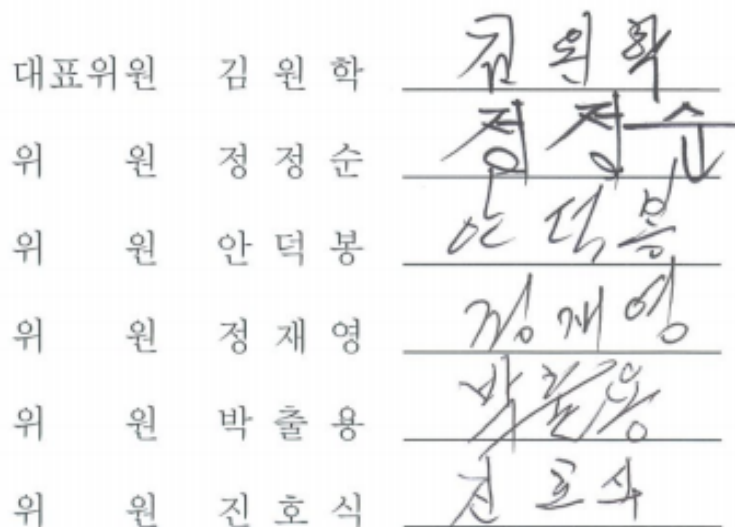 대표위원 김 원 학 김 원 학
위 원 정 정 순 정 정 순
위 원 안 덕 봉 안 덕 봉
위 원 정 재 영 정 재 영
위 원 박 출 용 박 출 용
위 원 진 호 식 진 호 식